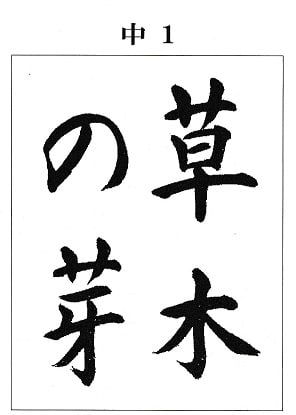 中1
草木
の芽